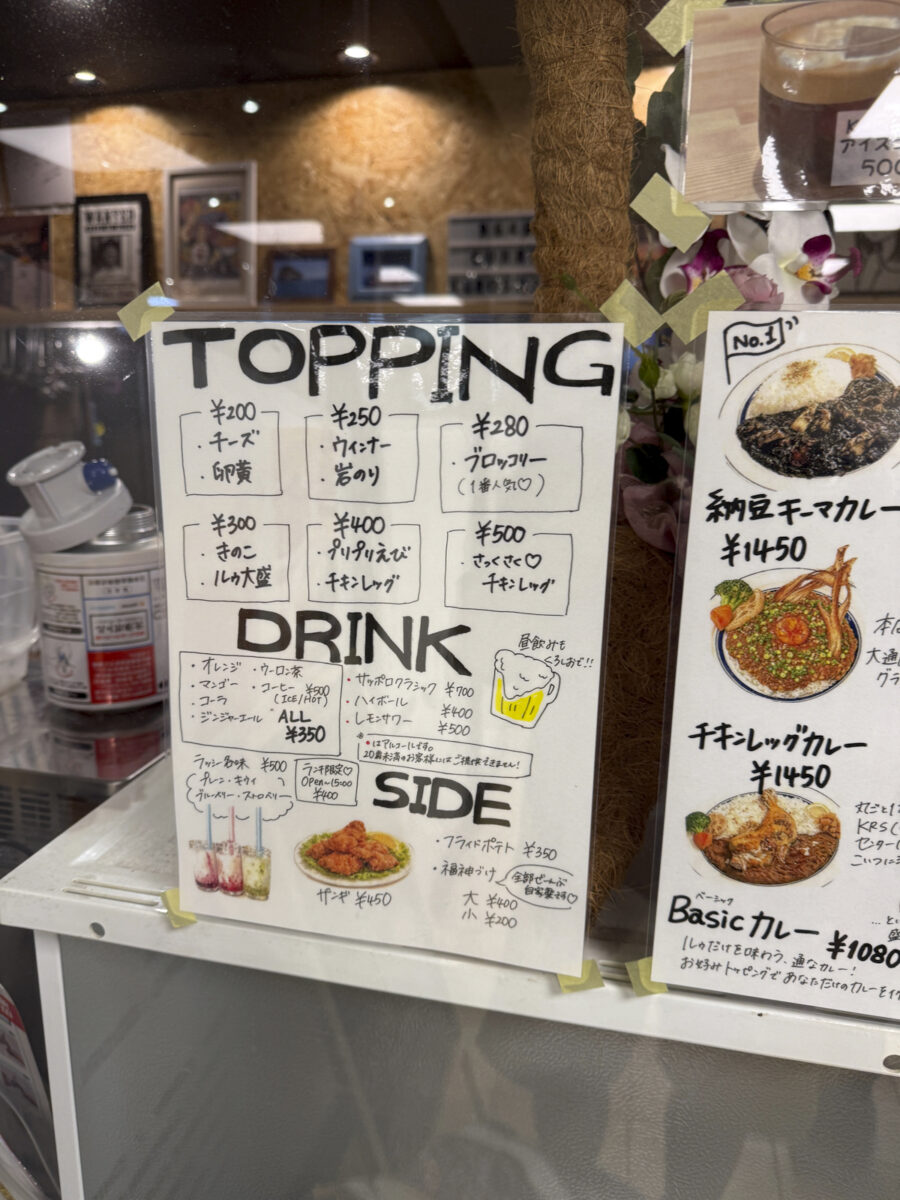 WANTED
アイス
500
TOPPING
¥200
・チーズ
・卵黄
¥250
・ウィンナー
・岩のり
¥280
・ブロッコリー
(1番人気♡)
¥300
・きのこ
・ルゥ大盛
¥400
・プリプリえび
・チキンレッグ
¥500
・さっくさく♡
チキンレッグ
DRINK
・オレンジ ・ウーロン茶
・マンゴー ・コーヒー ¥500
・コーラ (ICE/HOT)
・ジンジャーエール ALL
¥350
・サッポロクラシック ¥700
・ハイボール ¥400
・レモンサワー ¥500
※・はアルコールです。
20歳未満のお客様にはご提供できません!
昼飲みも
くろしおで!!
ラッシー各味 ¥500
プレーン・キウイ
ブルーベリー・ストロベリー
ランチ限定♡
Open〜15:00
¥400
SIDE
・フライドポテト ¥350
・福神づけ
全部ぜーんぶ
自家製です♡
大 ¥400
小 ¥200
ザンギ ¥450
No.1
納豆キーマカレー
¥1450
チキンレッグカレー
¥1450
丸ごと1
KRS(
センター
こいつに
ベーシック
Basicカレー
¥1080
ルゥだけを味わう、通なカレー!
お好みトッピングであなただけのカレーを